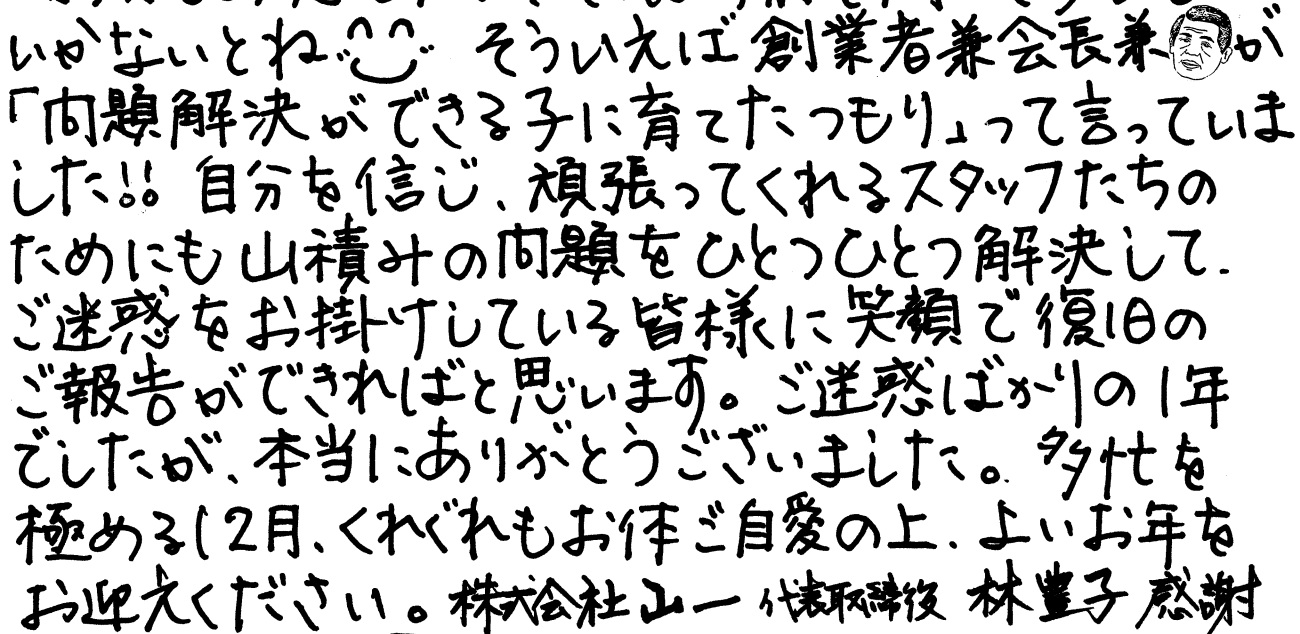 いかないとね。そういえば創業者兼会長兼が
「問題解決ができる子に育てたつもり」って言っていま
した!! 自分を信じ、頑張ってくれるスタッフたちの
ためにも山積みの問題をひとつひとつ解決して、
ご迷惑をお掛けしている皆様に笑顔で復旧の
ご報告ができればと思います。ご迷惑ばかりの1年
でしたが、本当にありがとうございました。多忙を
極める12月、くれぐれもお体ご自愛の上、よいお年を
お迎えください。株式会社山一 代表取締役 林豊子 感謝